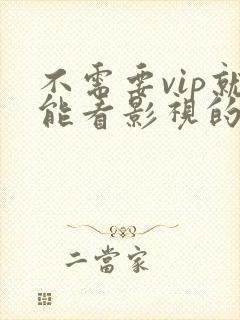 不需要vip就
能看影視的
二當家